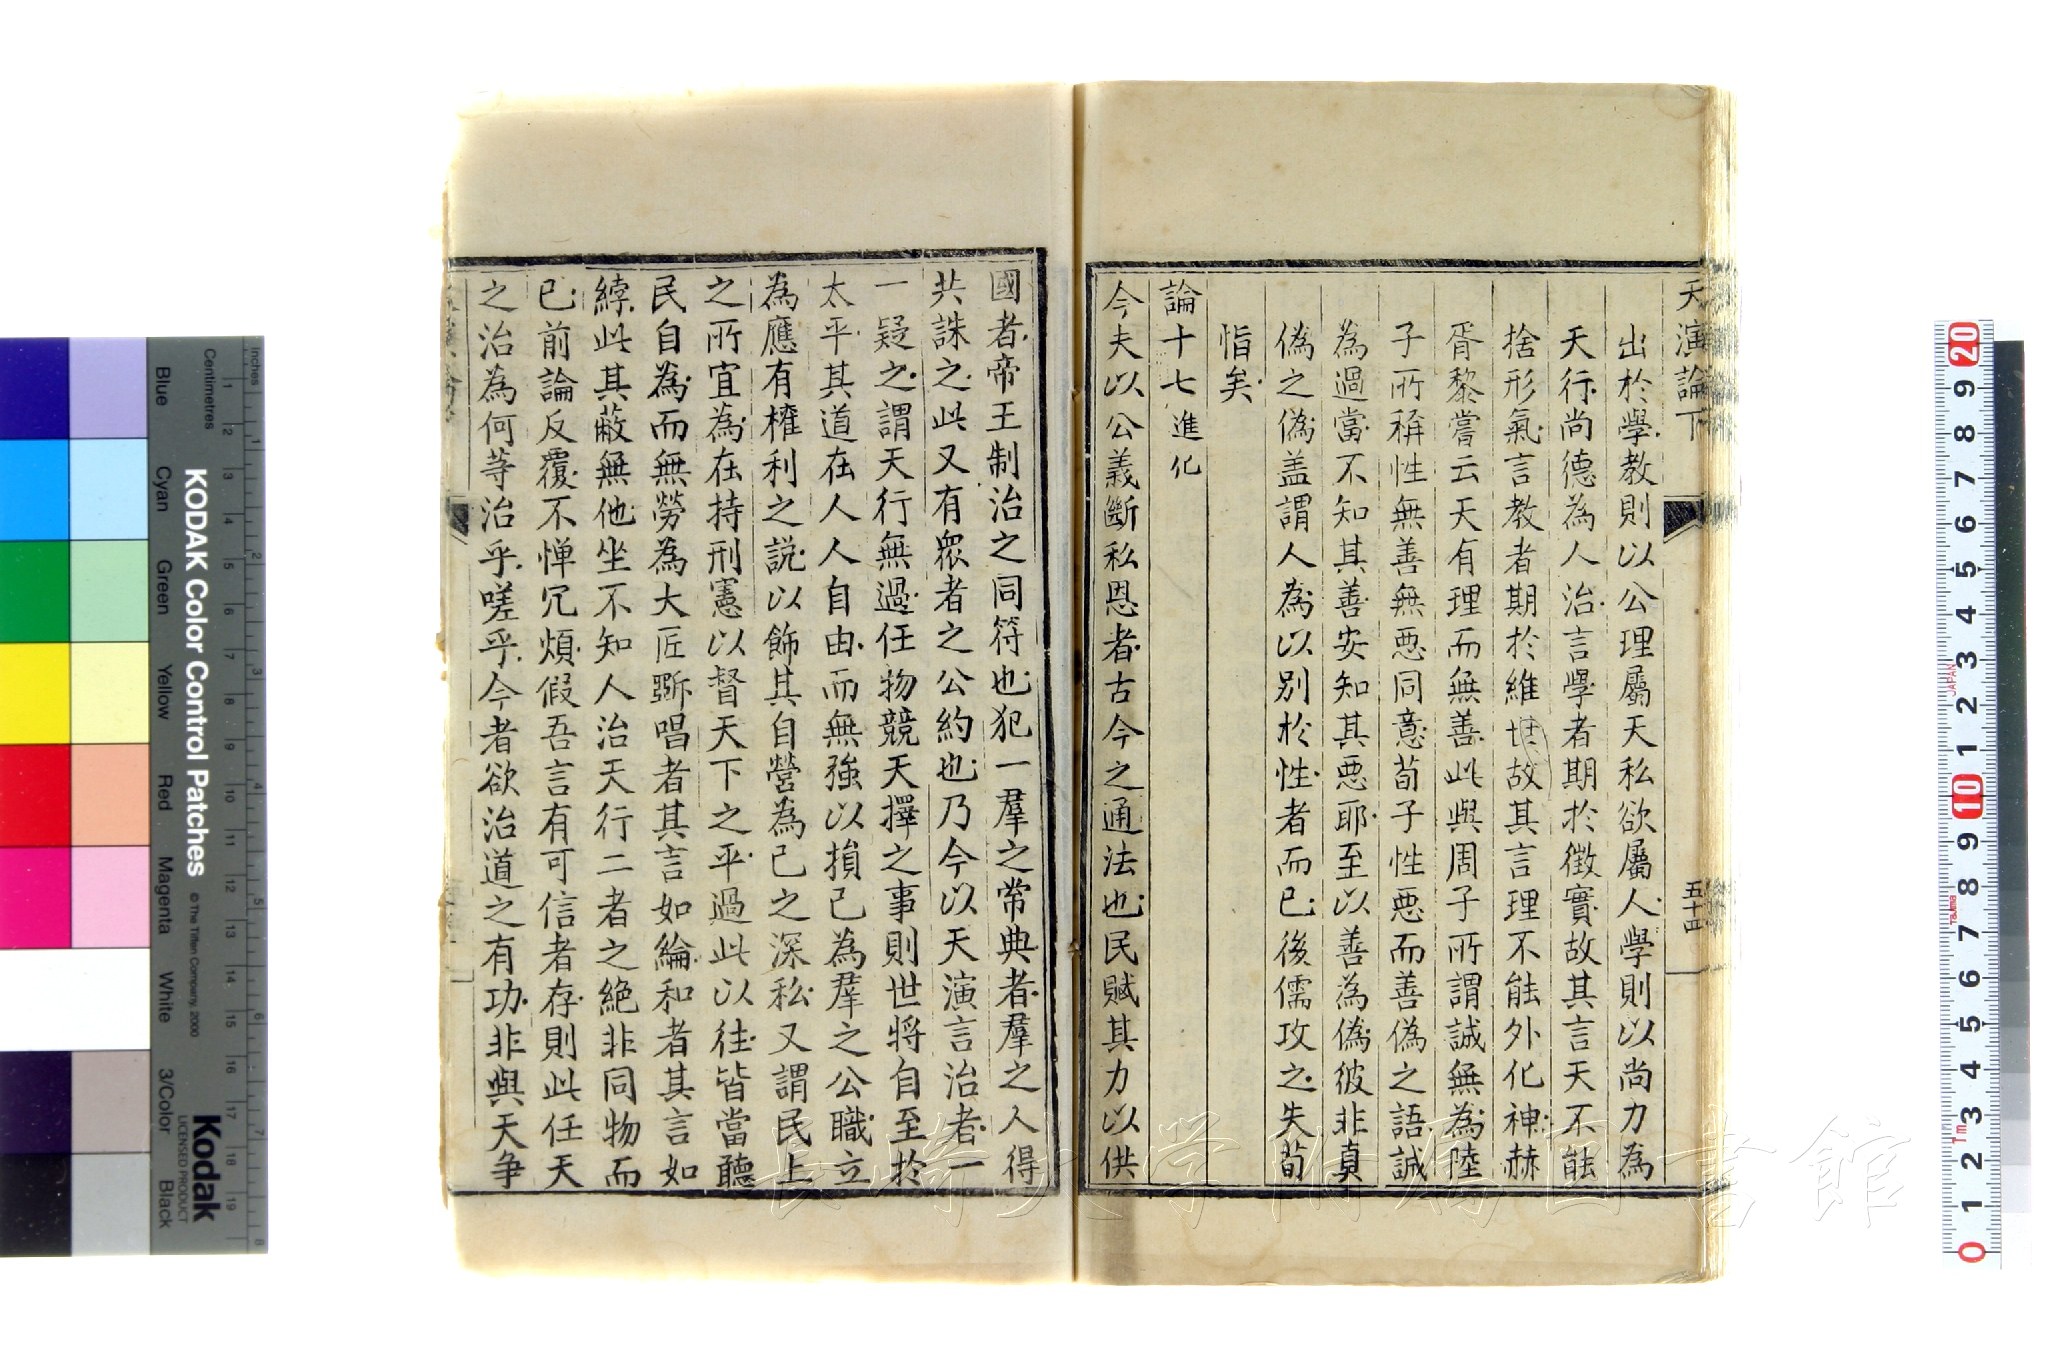 天演論下
五十四
出於學教則以公理屬天私欲屬人學則以尚力為
天行尚德為人治言學者期於徵實故其言天不能
捨形氣言教者期於維世故其言理不能外化神赫
胥黎嘗云天有理而無善此與周子所謂誠無為陸
子所稱性無善無惡同意荀子性惡而善偽之語誠
為過當不知其善安知其惡耶至以善為偽彼非真
偽之偽盖謂人為以別於性者而已後儒攻之失荀
恉矣
論十七進化
今夫以公義斷私恩者古今之通法也民賦其力以供
國者帝王制治之同符也犯一羣之常典者羣之人得
共誅之此又有眾者之公約也乃今以天演言治者一
一疑之謂天行無過任物競天擇之事則世將自至於
太平其道在人人自由而無強以損己為羣之公職立
為應有榷利之說以飾其自營為己之深私又謂民上
之所宜為在持刑憲以督天下之平過此以往皆當聽
民自為而無勞為大匠斲唱者其言如綸和者其言如
綍此其蔽無他坐不知人治天行二者之絕非同物而
已前論反覆不憚冗煩假吾言有可信者存則此任天
之治為何等治乎嗟乎今者欲治道之有功非與天爭
長崎大学附属図書館
KODAK Color Control Patches
© The Tiffen Company, 2000
Kodak
LICENSED PRODUCT
Inches
Centimetres
Blue
Cyan
Green
Yellow
Red
Magenta
White
3/Color
Black
JAPAN
Tajima
Tm